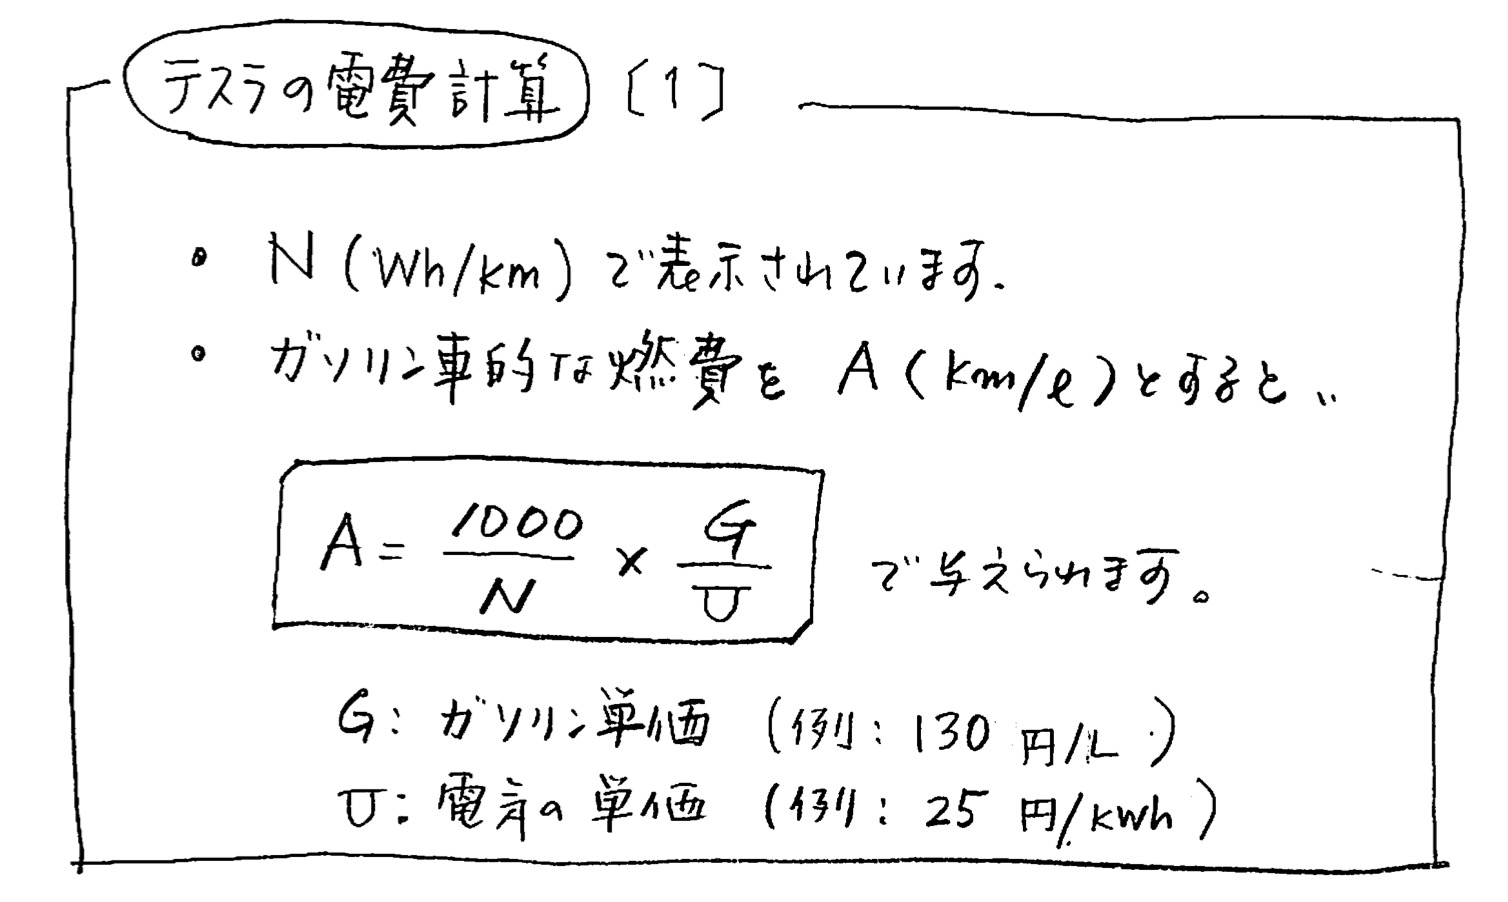 テスラの電費計算 〔1〕
• N (Wh/km) で表示されています.
• ガソリン車的な燃費を A (km/ℓ) とすると、、
A = 1000/N × G/U で与えられます。
G: ガソリン単価 (例: 130 円/L)
U: 電気の単価 (例: 25 円/kWh)